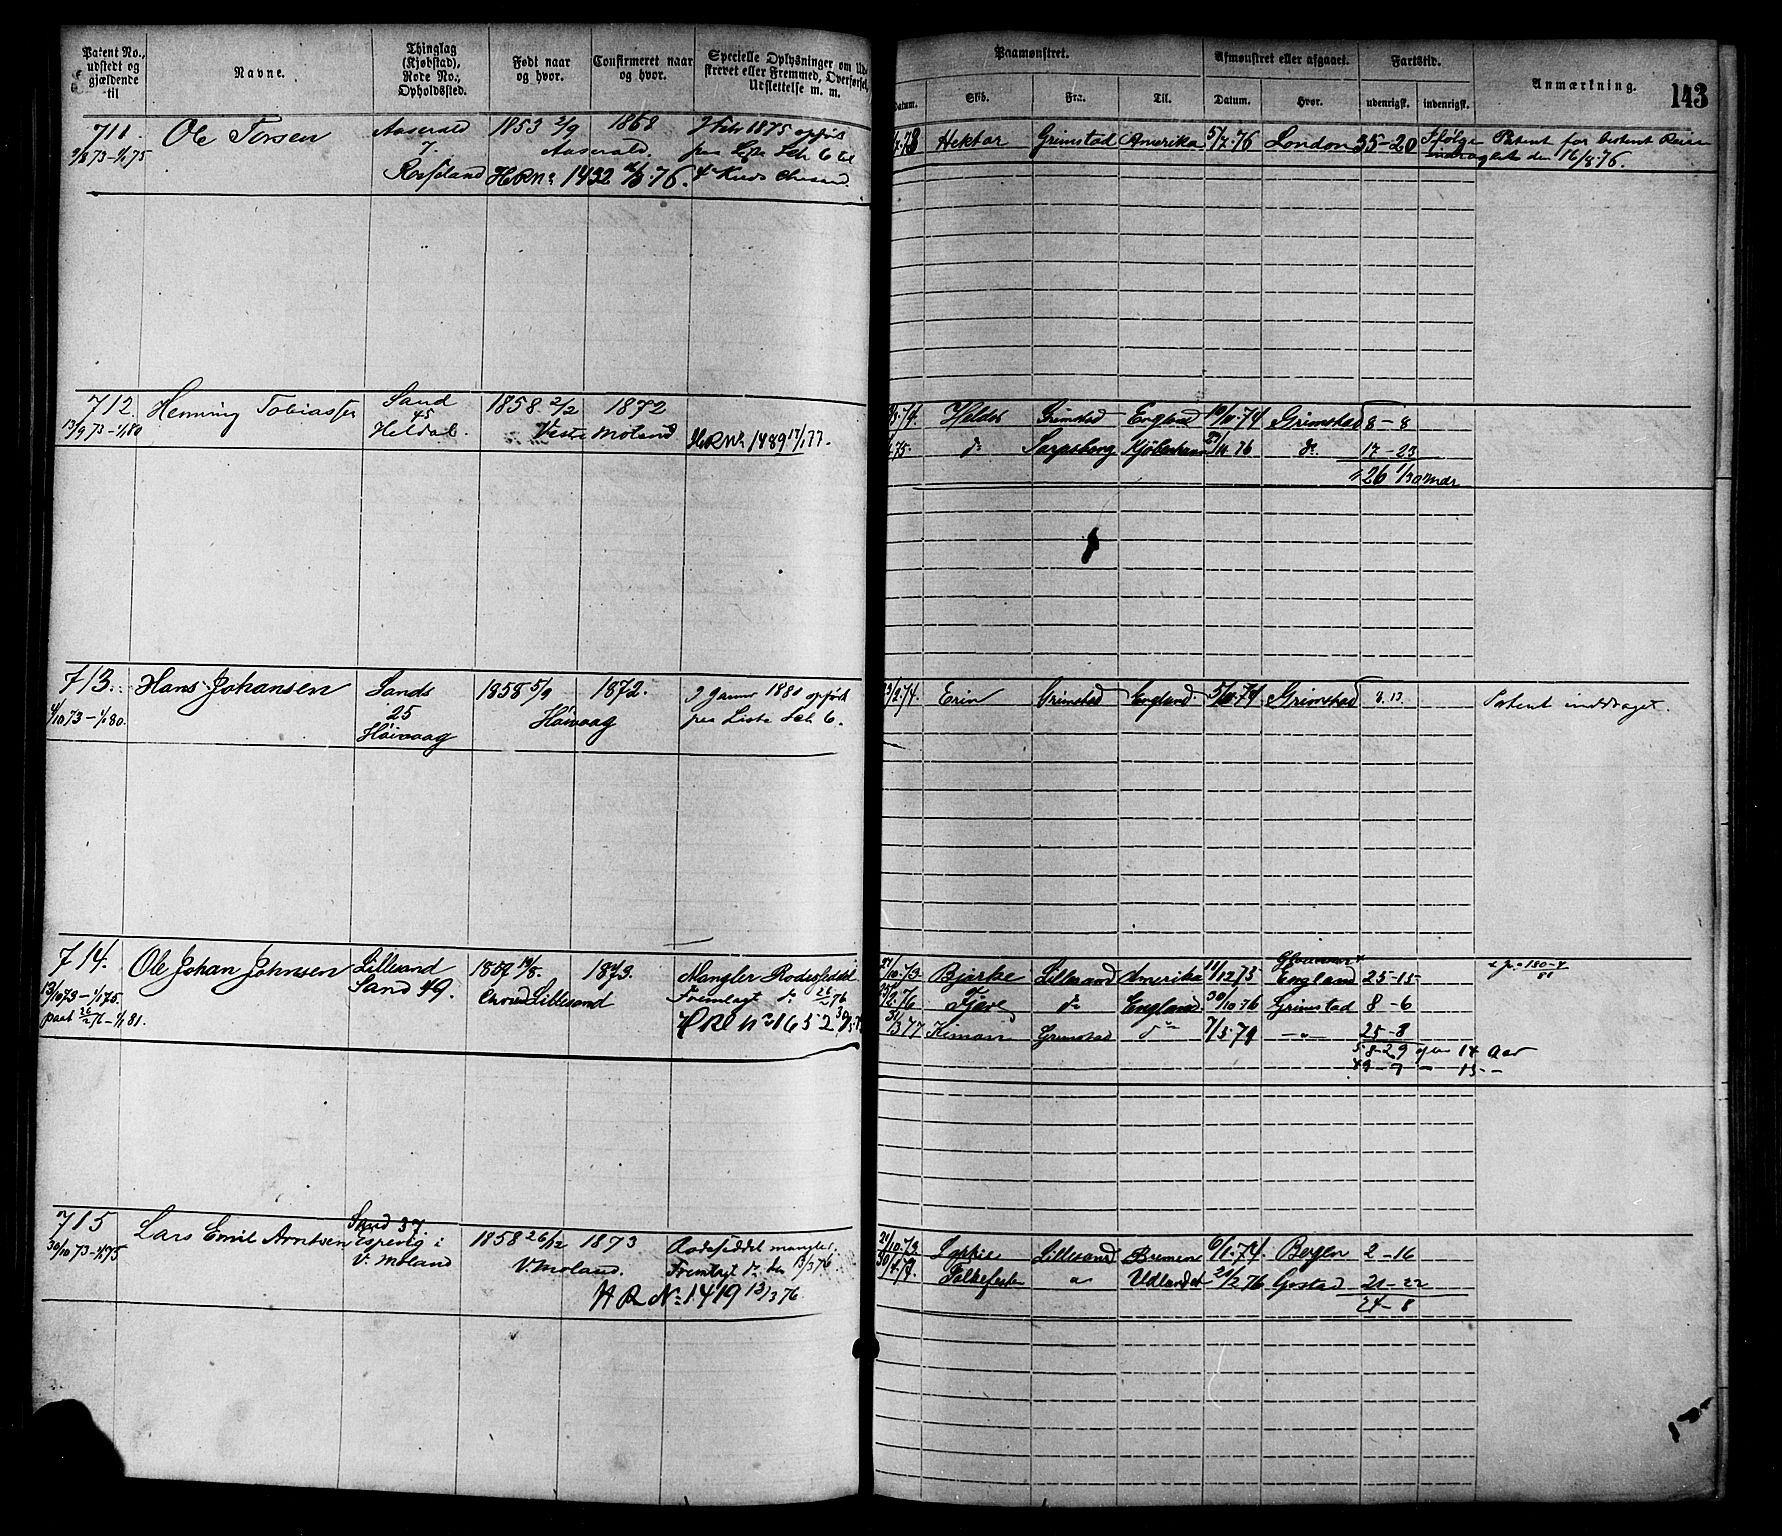 Patent No., udstedt og gjældende til
Navne.
Thinglag (Kjøbstad), Rode No., Opholdssted.
Født naar og hvor.
Confirmeret naar og hvor.
Specielle Oplysninger om Udskrevet eller Fremmed, Overførsel, Udslettelse m. m.
Paamønstret.
Datum.
Skib.
Fra.
Til.
Afmønstret eller afgaaet.
Datum.
Hvor.
Fartstid.
udenrigsk.
indenrigsk.
Anmærkning.
143
711.
Ole Torsen
Aaserald
7.
Rosseland
1853 2/9
Aaserald.
1868
2 Febr 1875 opført
paa
H.R.No 1432
76.
Hektor
Grimstad
Amerika
76
London
35-20
Ifølge Patent for bestemt Reise
inddraget den 16/8 76.
712.
13/9 73-1/1 80
Henning Tobiassen
Sand
45
Heldal.
1858 2/2
1872
Vestre Moland
H.R.No 1489 17/1 77.
Grimstad
England
10/10.74
Grimstad
8-8
do
Sarpsborg
Kjøbenhavn
76
do.
17-23
26 1/30 Mdr
713.
4/10 73-1/1 80.
Hans Johansen
Sands
25
Høivaag
1858 5/9
1872.
Høivaag
2 Januar 1880 opført
paa Liste Ltr 6.
Erin
Grimstad
England.
5/10.74
Grimstad
8.13.
Patent inddraget.
714.
13/10 73-1/1 75.
paat 26/2 76-1/1 81.
Ole Johan Johnsen
Lillesand
Sand 49.
1873.
Lillesand
Mangler Rodeseddel
Fremlagt do 26/2 76
H.R. No 1652
27/10.73
Bjarke
Lillesand
Amerika
11/12 73
England
25-15
2.76
do
England
30/10 76
Grimstad
8-6
31/3 77
Grimstad
do
7/5.79
-"-
25-8
58-29 over 14 Aar
49-7 - 15 -
715
30/10 73-1/1 75
Lars Emil Arntsen
Sand 37
Espevig i
V. Moland
1858 26/12
1873
V. Moland.
Rodeseddel mangler.
Fremlagt do den 13/3 76
H R No 1419 13/3 76
Lillesand
Bremen
6/1.74.
Bergen
2-16
"
Udlandet
21/2 76
Gstad
21-22
24-8